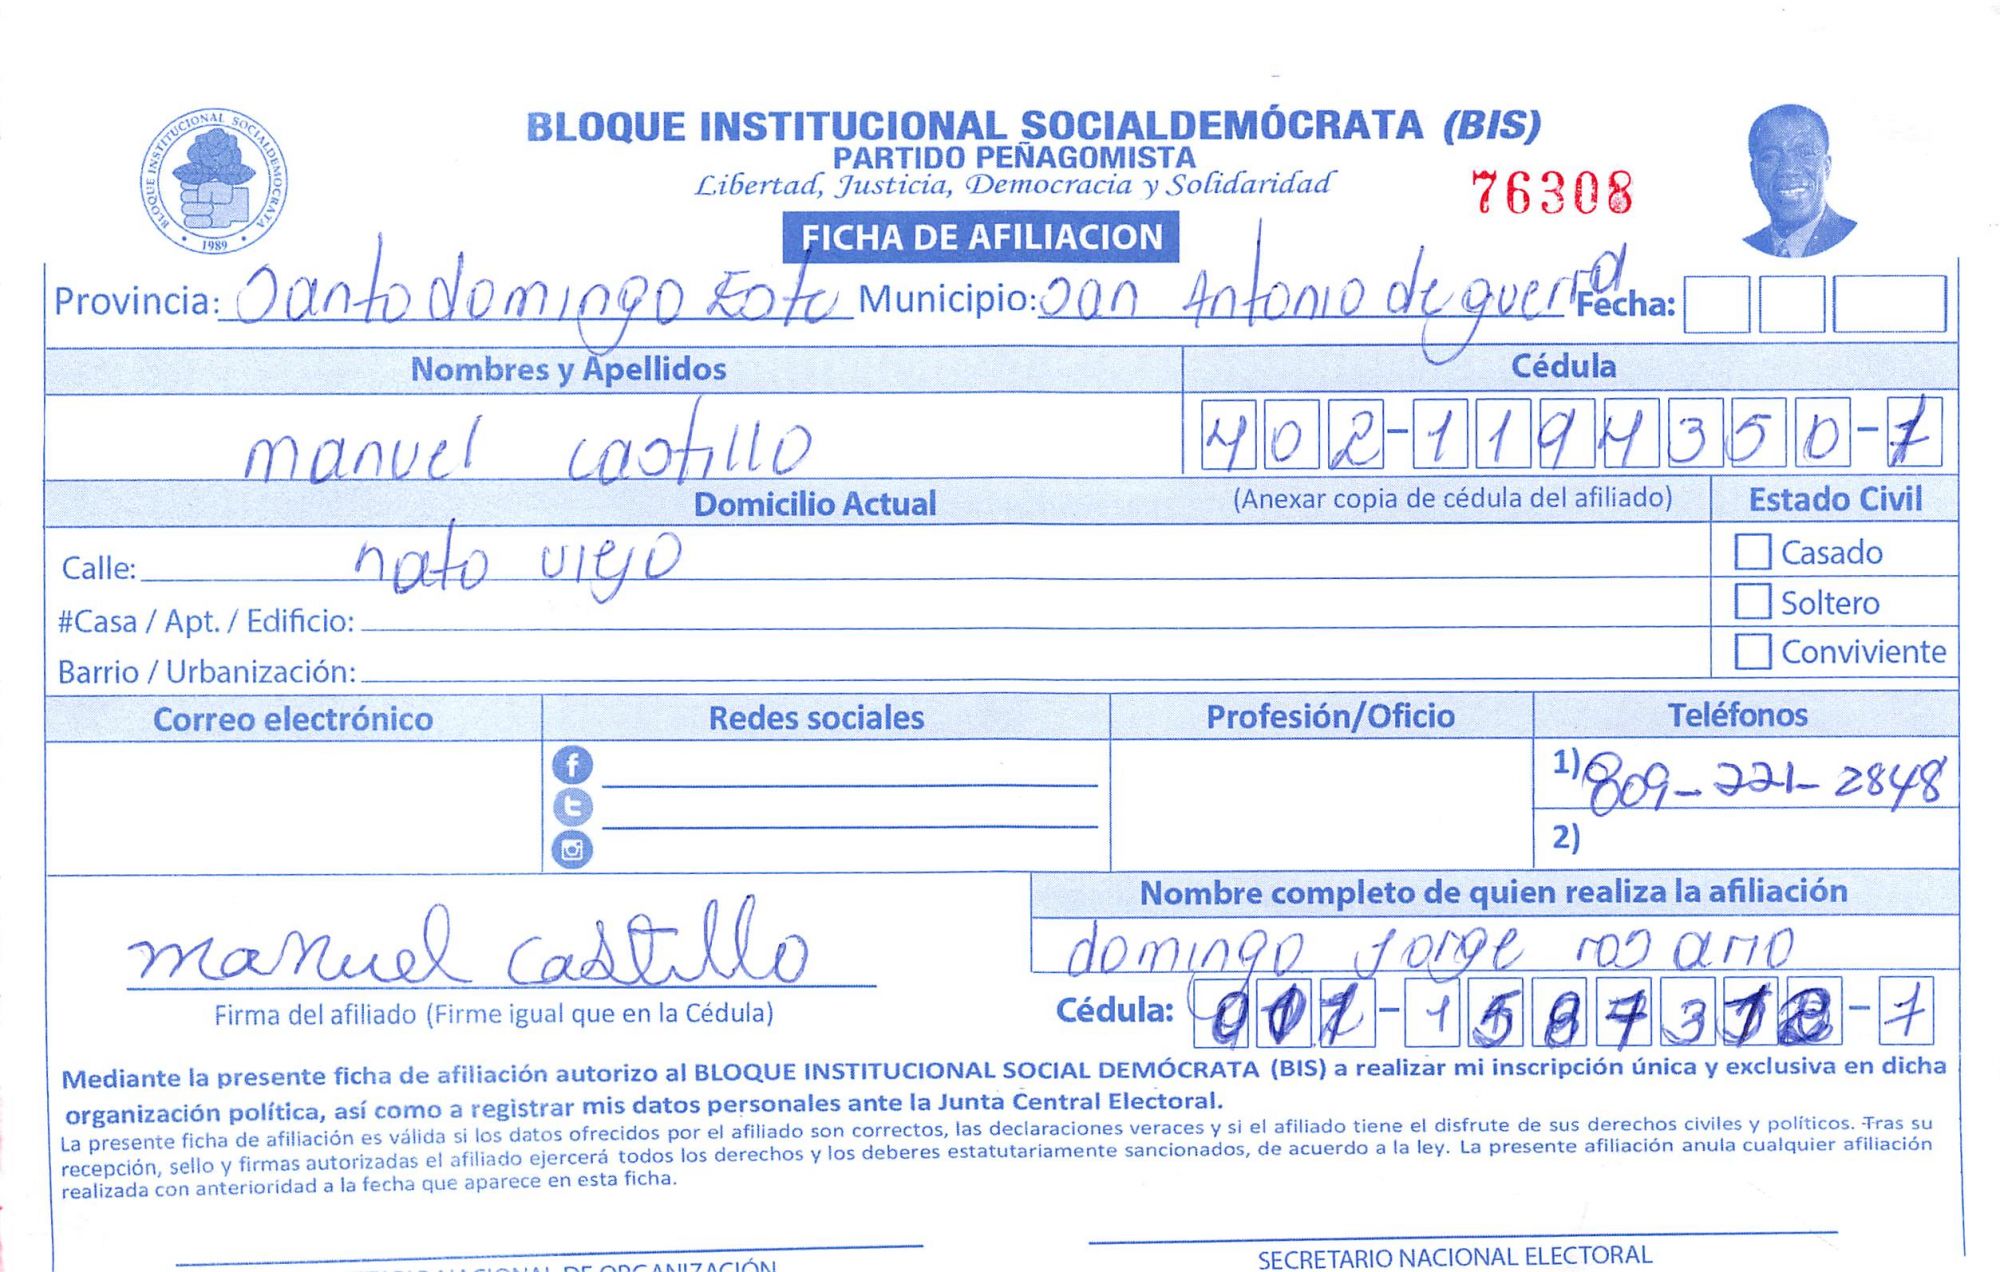 BLOQUE INSTITUCIONAL SOCIALDEMOCRATA
1989
BLOQUE INSTITUCIONAL SOCIALDEMÓCRATA (BIS)
PARTIDO PEÑAGOMISTA
Libertad, Justicia, Democracia y Solidaridad
76308
FICHA DE AFILIACION
Provincia: Santo domingo Este Municipio: San Antonio de guerra Fecha:
Nombres y Apellidos Cédula
manuel castillo 402-1194350-1
Domicilio Actual (Anexar copia de cédula del afiliado) Estado Civil
Calle: hato viejo Casado
#Casa / Apt. / Edificio: Soltero
Barrio / Urbanización: Conviviente
Correo electrónico Redes sociales Profesión/Oficio Teléfonos
1) 809-221-2848
2)
Nombre completo de quien realiza la afiliación
manuel castillo domingo Jorge rosario
Firma del afiliado (Firme igual que en la Cédula) Cédula:
Mediante la presente ficha de afiliación autorizo al BLOQUE INSTITUCIONAL SOCIAL DEMÓCRATA (BIS) a realizar mi inscripción única y exclusiva en dicha
organización política, así como a registrar mis datos personales ante la Junta Central Electoral.
La presente ficha de afiliación es válida si los datos ofrecidos por el afiliado son correctos, las declaraciones veraces y si el afiliado tiene el disfrute de sus derechos civiles y políticos. Tras su
recepción, sello y firmas autorizadas el afiliado ejercerá todos los derechos y los deberes estatutariamente sancionados, de acuerdo a la ley. La presente afiliación anula cualquier afiliación
realizada con anterioridad a la fecha que aparece en esta ficha.
NACIONAL DE ORGANIZACIÓN SECRETARIO NACIONAL ELECTORAL